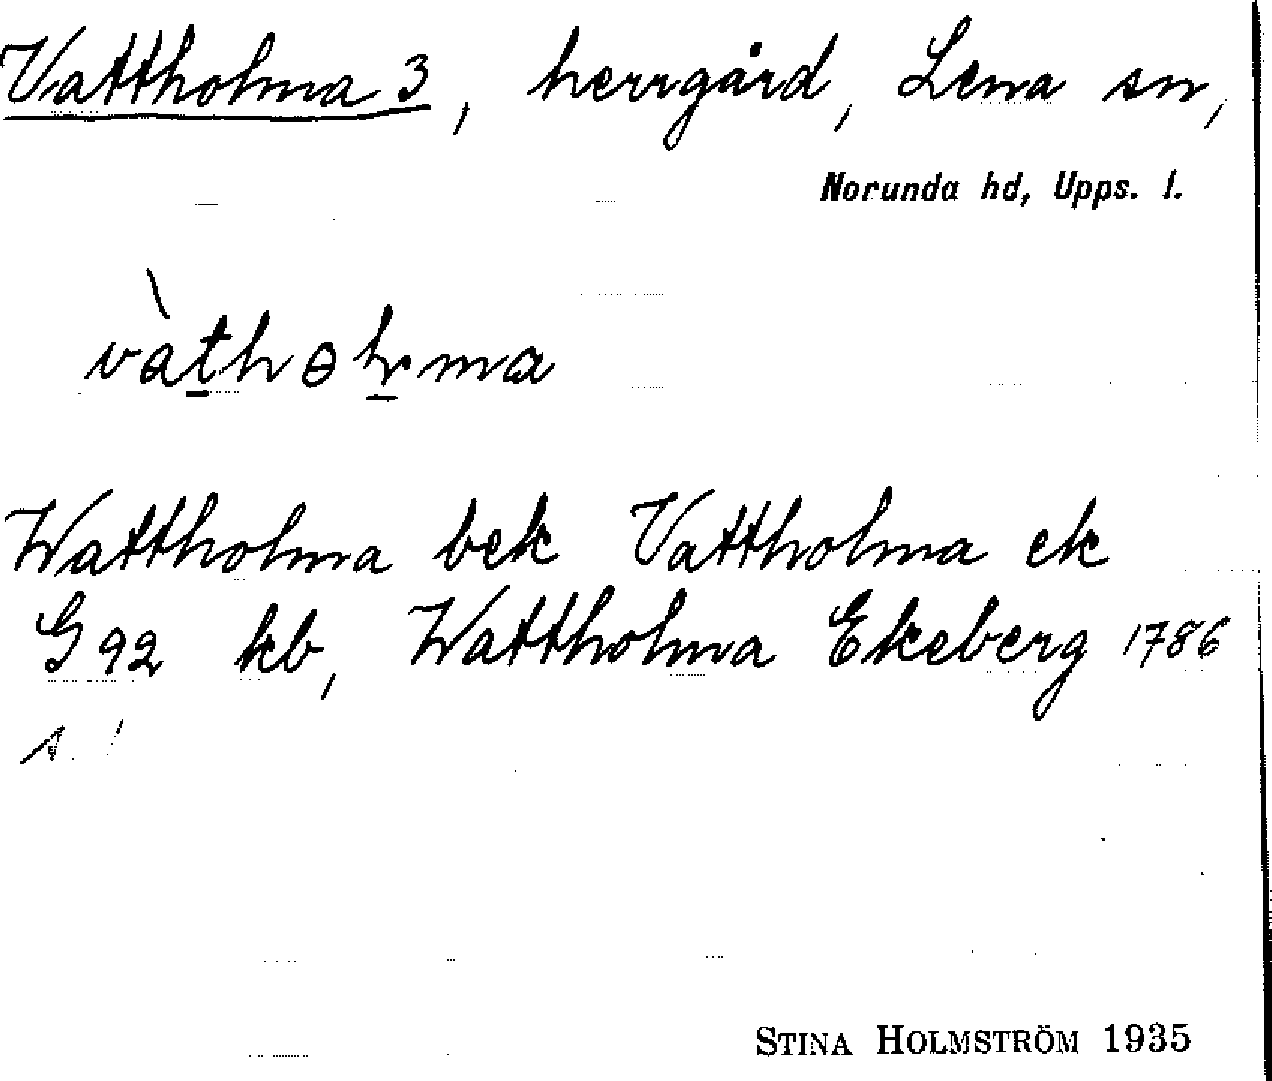 Vattholma 3, herrgård, Lena sn,
Norunda hd, Upps. l.
Wattholma bek Vattholma ek
G 92 kb, Wattholma Ekeberg 1786
STINA HOLMSTRÖM 1935